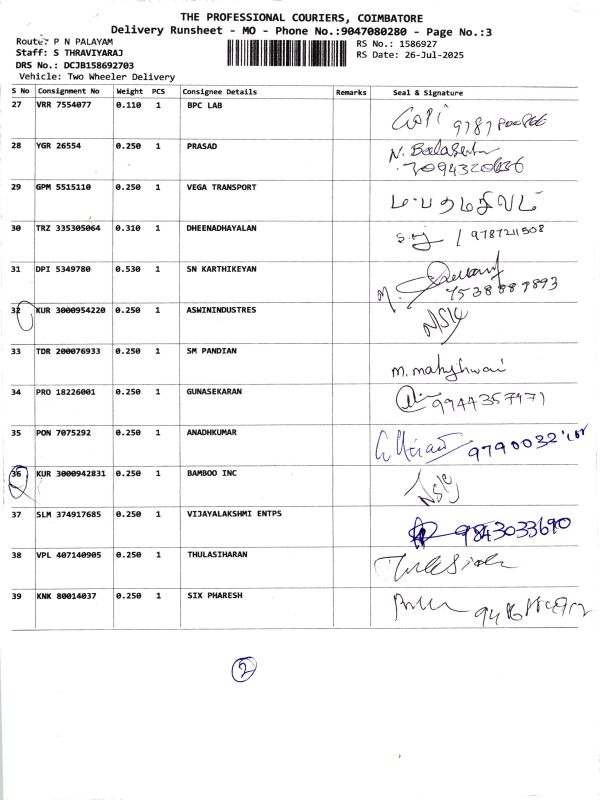 THE PROFESSIONAL COURIERS, COIMBATORE
Delivery Runsheet - MO - Phone No.:9047080280 - Page No.:3
Route: P N PALAYAM
Staff: S THRAVIYARAJ
DRS No.: DCJB158692703
Vehicle: Two Wheeler Delivery
RS No.: 1586927
RS Date: 26-Jul-2025
S No Consignment No Weight PCS Consignee Details Remarks Seal & Signature
27 VRR 7554077 0.110 1 BPC LAB Gopi
28 YGR 26554 0.250 1 PRASAD
29 GPM 5515110 0.250 1 VEGA TRANSPORT
30 TRZ 335305064 0.310 1 DHEENADHAYALAN 9787211508
31 DPI 5349780 0.530 1 SN KARTHIKEYAN M. 7538889893
32 KUR 3000954220 0.250 1 ASWININDUSTRES
33 TDR 200076933 0.250 1 SM PANDIAN
34 PRO 18226001 0.250 1 GUNASEKARAN 9944357971
35 PON 7075292 0.250 1 ANADHKUMAR
36 KUR 3000942831 0.250 1 BAMBOO INC
37 SLM 374917685 0.250 1 VIJAYALAKSHMI ENTPS 9843033690
38 VPL 407140905 0.250 1 THULASIHARAN
39 KNK 80014037 0.250 1 SIX PHARESH
2